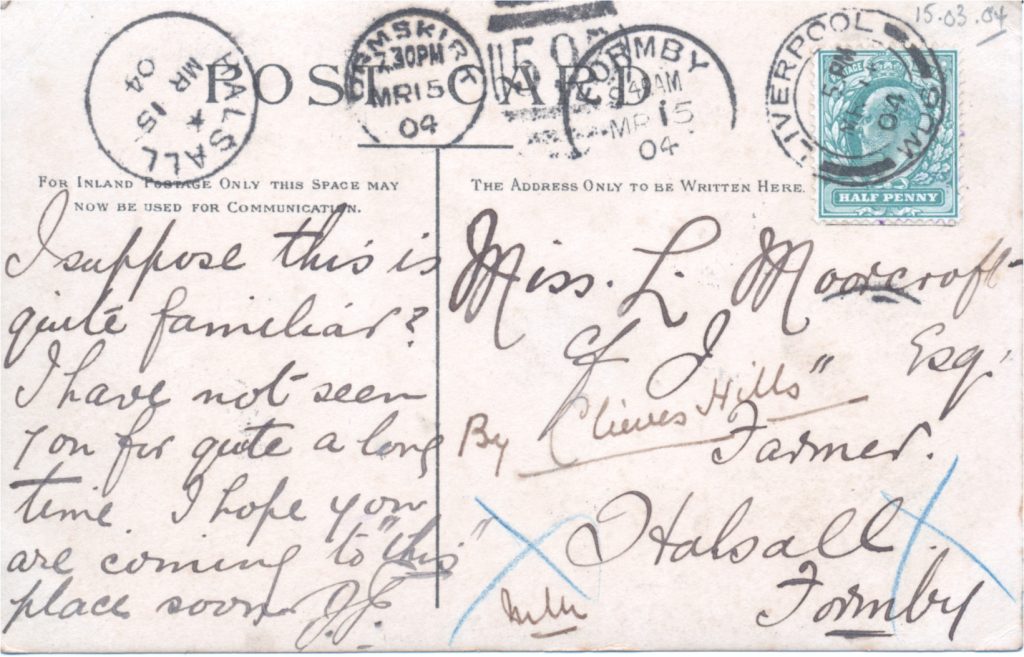 15.03.04
HALSALL
MR 15
04
ORMSKIRK
7.30PM
MR 15
04
FORMBY
MR 15
04
LIVERPOOL
04
POSTAGE
HALF PENNY
POST CARD
FOR INLAND POSTAGE ONLY THIS SPACE MAY
NOW BE USED FOR COMMUNICATION.
THE ADDRESS ONLY TO BE WRITTEN HERE.
I suppose this is
quite familiar?
I have not seen
you for quite a long
time. I hope you
are coming to "this"
place soon J.J.
Miss. L. Moorcroft
J Esq.
By "Clieves Hills"
Farmer.
Halsall.
Formby